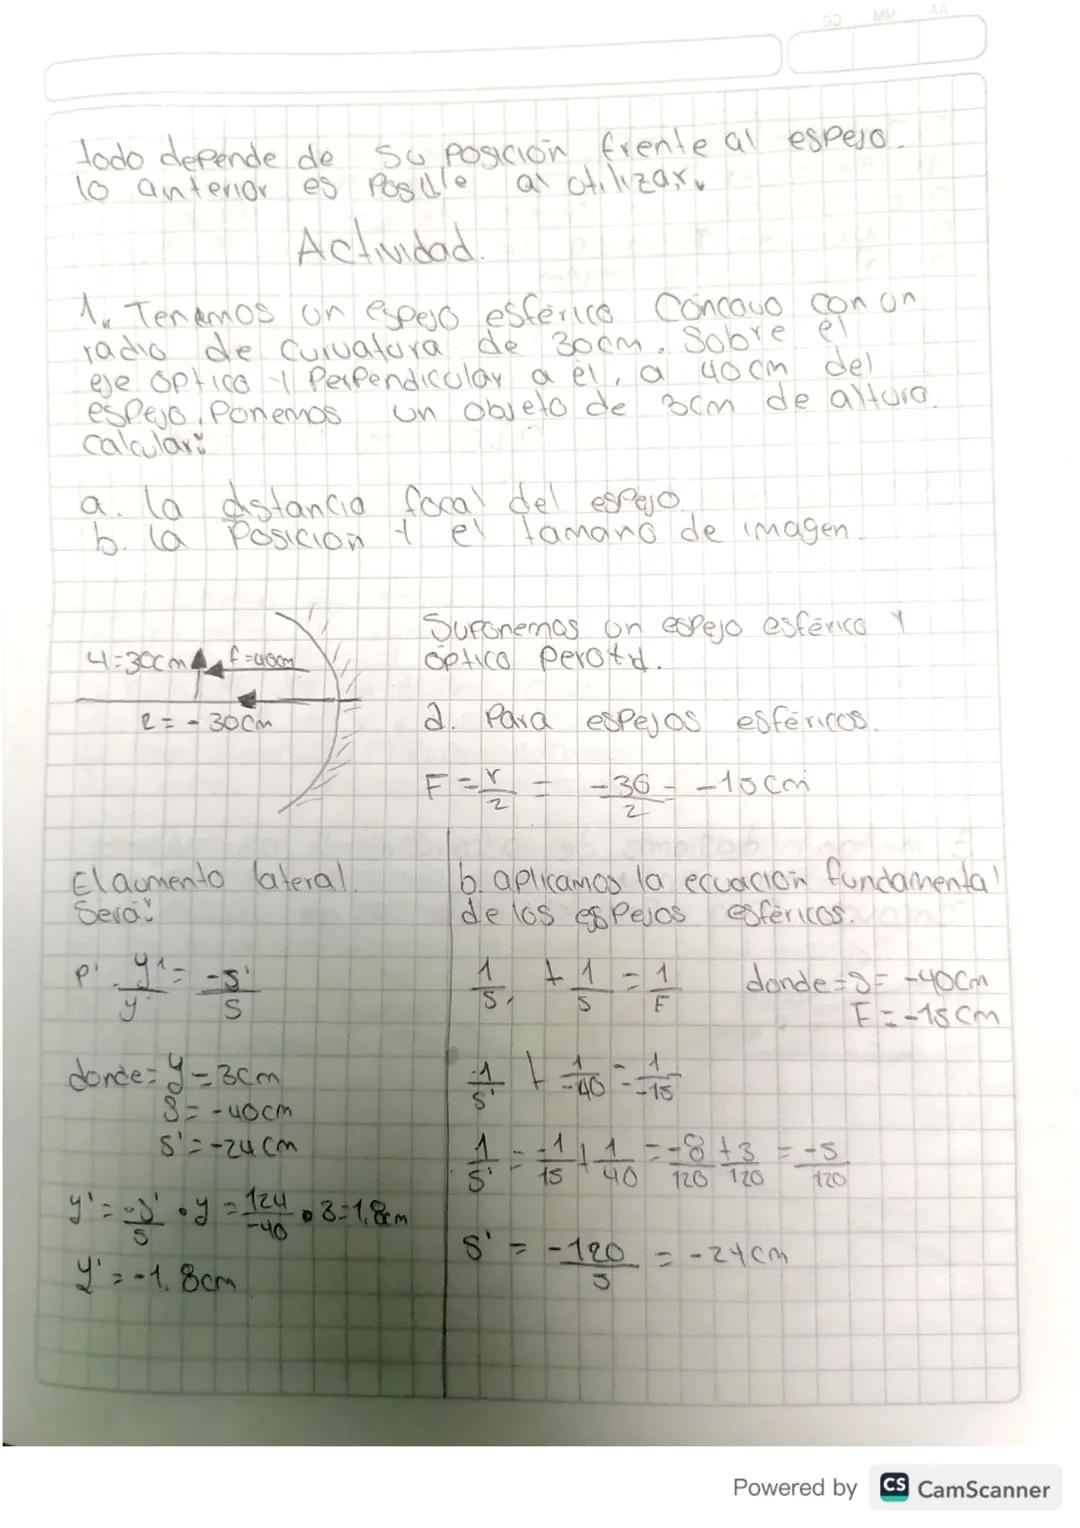 DD MM AA
todo depende de su posición frente al espejo.
lo anterior es posible al utilizar.
Actividad.
1. Tenemos un espejo esférico Concavo con un
radio de curvatura de 30cm. Sobre el
eje óptico y Perpendicular a él, a 40cm del
espejo, Ponemos un objeto de 3cm de altura.
calcular:
a. la distancia focal del espejo.
b. la Posicion y el tamaño de imagen.
Suponemos un espejo esférico y
óptico
4=30cm f=40cm
r = - 30cm
a. Para espejos esféricos.
F = r/2 = -30/2 = -15cm
El aumento lateral
Será:
b. aplicamos la ecuación fundamental
de los espejos esféricos.
p' y'/y = -s'/s
1/s' + 1/s = 1/F donde = S = -40cm
F = -15cm
donde = y = 3cm
S = -40cm
S' = -24cm
-1/s' + 1/-40 = 1/-15
1/s' = -1/15 + 1/40 = -8/120 + 3/120 = -5/120
y' = -s'/s • y = 124/-40 • 3 = 1,8cm
y' = -1.8cm
S' = -120/5 = -24cm
Powered by CS CamScanner